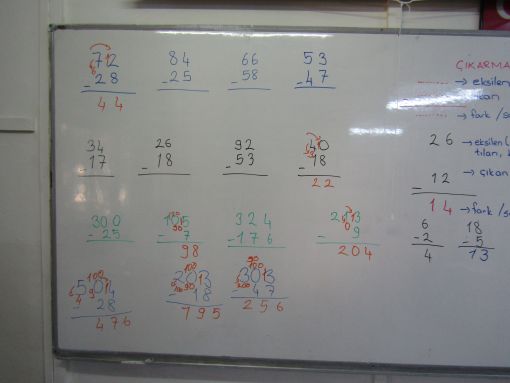 72 84 66 53
- 28 - 25 - 58 - 47
44
34 26 92 40
- 17 - 18 - 53 - 18
22
300 105 324 213
- 25 - 7 - 176 - 9
98 204
504 203 303
- 28 - 18 - 47
476 195 256
ÇIKARMA
→ eksilen
→ fark /
26 → eksilen (
tılan,
- 12 → çıkan
14 → fark /
6 18
- 2 - 5
4 13